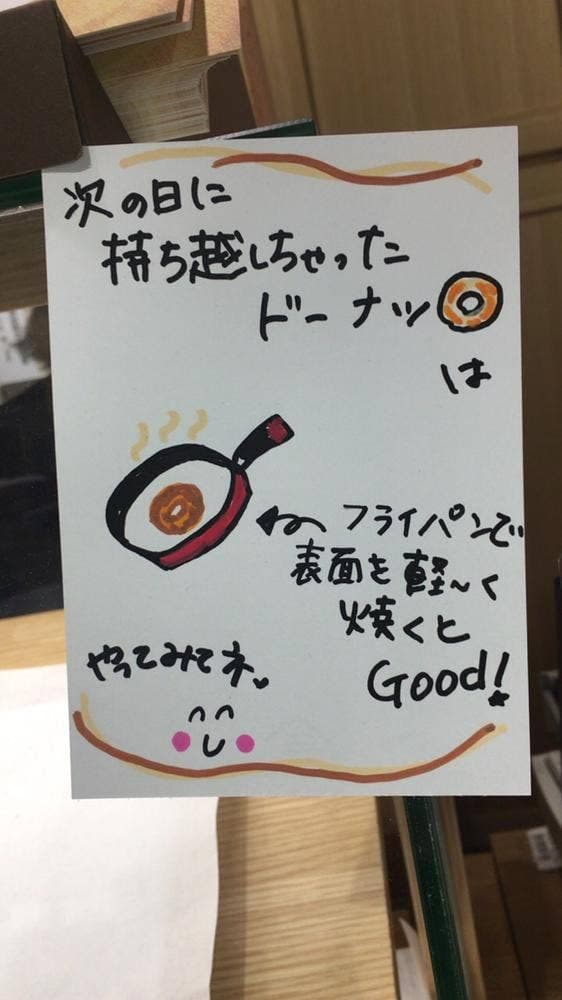 次の日に
持ち越しちゃった
ドーナツ
は
フライパンで
表面を軽〜く
焼くと
Good!
やってみてネ